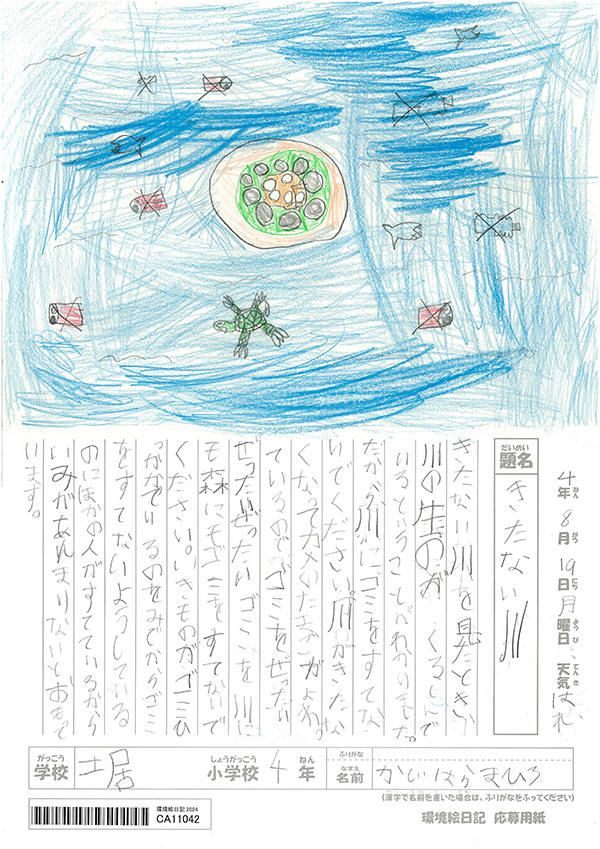 4年 8月 19日 月曜日 天気 はれ
だいめい
題名 きたない川
きたない川を見たときい、
川の生のが、くるしいで
いるということがわかりました。
だから川にゴミをすてな
いでください。川がきたな
くなってカメのたまごがよわっ
ているのでゴミをぜったい
ぜったいぜったいゴミを川に
も森にもゴミをすてないで
ください。いきものがゴミひ
っかかっているのをみてからゴミ
をすてないようしている
のにほかの人がすてているから
いみがあんまりないとおもって
います。
がっこう
学校 土居 しょうがっこう 小学校 4 ねん 年
ふりがな
なまえ
名前 かじはらまひろ
(漢字で名前を書いた場合は、ふりがなをふってください)
環境絵日記 2024
CA11042
環境絵日記 応募用紙